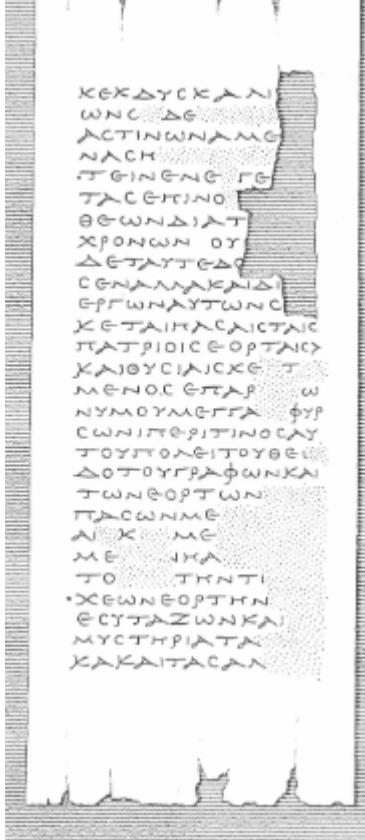 ΚΕΚΔΥCΚΑΛΙ
ΩΝC ΔΕ
ΑCΤΙΝΩΝΑΜΕ
ΝΑCΗ
ΤΕΙΝΕΝΕ ΓΕ
ΤΑCΕΠΙΝΟ
ΘΕΩΝΔΙΑΤ
ΧΡΟΝΩΝ ΟΥ
ΔΕΤΑΥΤΕΔΟ
CΕΝΑΛΛΑΚΑΙΔΙ
ΕΡΓΩΝΑΥΤΩΝC
ΚΕΤΑΙΠΑCΑΙCΤΑΙC
ΠΑΤΡΙΟΙCΕΟΡΤΑΙC
ΚΑΙΘΥCΙΑΙCΚΕ Τ
ΜΕΝΟCΕΠΑΡ Ω
ΝΥΜΟΥΜΕΓΓΑ ΦΥΡ
CΩΝΙΠΕΡΙΤΙΝΟCΑΥ
ΤΟΥΠΟΛΕΙΤΟΥΘΕ
ΔΟΤΟΥΓΡΑΦΩΝΚΑ
ΤΩΝΕΟΡΤΩΝ
ΠΑCΩΝΜΕ
ΑΙ Κ ΜΕ
ΜΕ ΙΗΑ
ΤΟ ΤΗΝΤΙ
ΧΕΩΝΕΟΡΤΗΝ
ΕCΥΤΑΖΩΝΚΑΙ
ΜΥCΤΗΡΙΑΤΑ
ΚΑΚΑΙΤΑCΑΛ